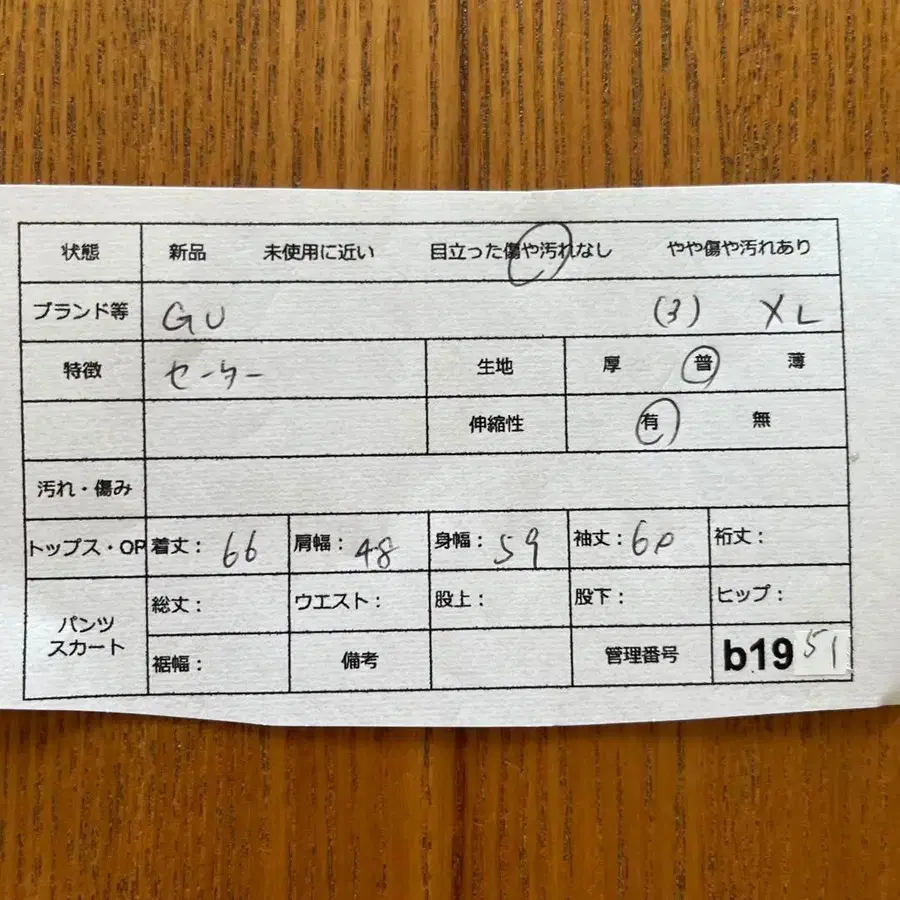 状態 新品 未使用に近い 目立った傷や汚れなし やや傷や汚れあり
ブランド等 GU (3) XL
特徴 セーター 生地 厚 普 薄
伸縮性 有 無
汚れ・傷み
トップス・OP 着丈: 66 肩幅: 48 身幅: 59 袖丈: 60 裄丈:
パンツ
スカート
総丈: ウエスト: 股上: 股下: ヒップ:
裾幅: 備考 管理番号 b1951